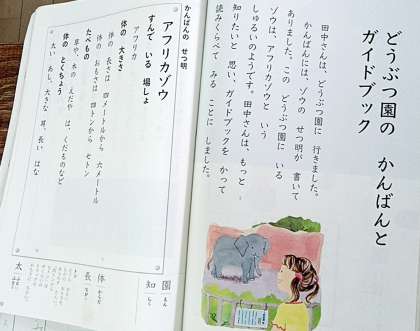 どうぶつ園の かんばんと
ガイドブック
田中さんは、どうぶつ園に 行きました。
かんばんには、ゾウの せつ明が 書いて
ありました。この どうぶつ園に いる
ゾウは、アフリカゾウと いう
しゅるいのようです。田中さんは、もっと
知りたいと 思い、ガイドブックを かって
読みくらべて みる ことに しました。
かんばんの せつ明
アフリカゾウ
すんで いる 場しょ
アフリカ
体の 大きさ
体の 長さは 四メートルから 六メートル
体の おもさは 四トンから 七トン
たべもの
草や、木の えだや は、くだものなど
体の とくちょう
太い あし、大きな 耳、長い はな
園
知
体
長
太